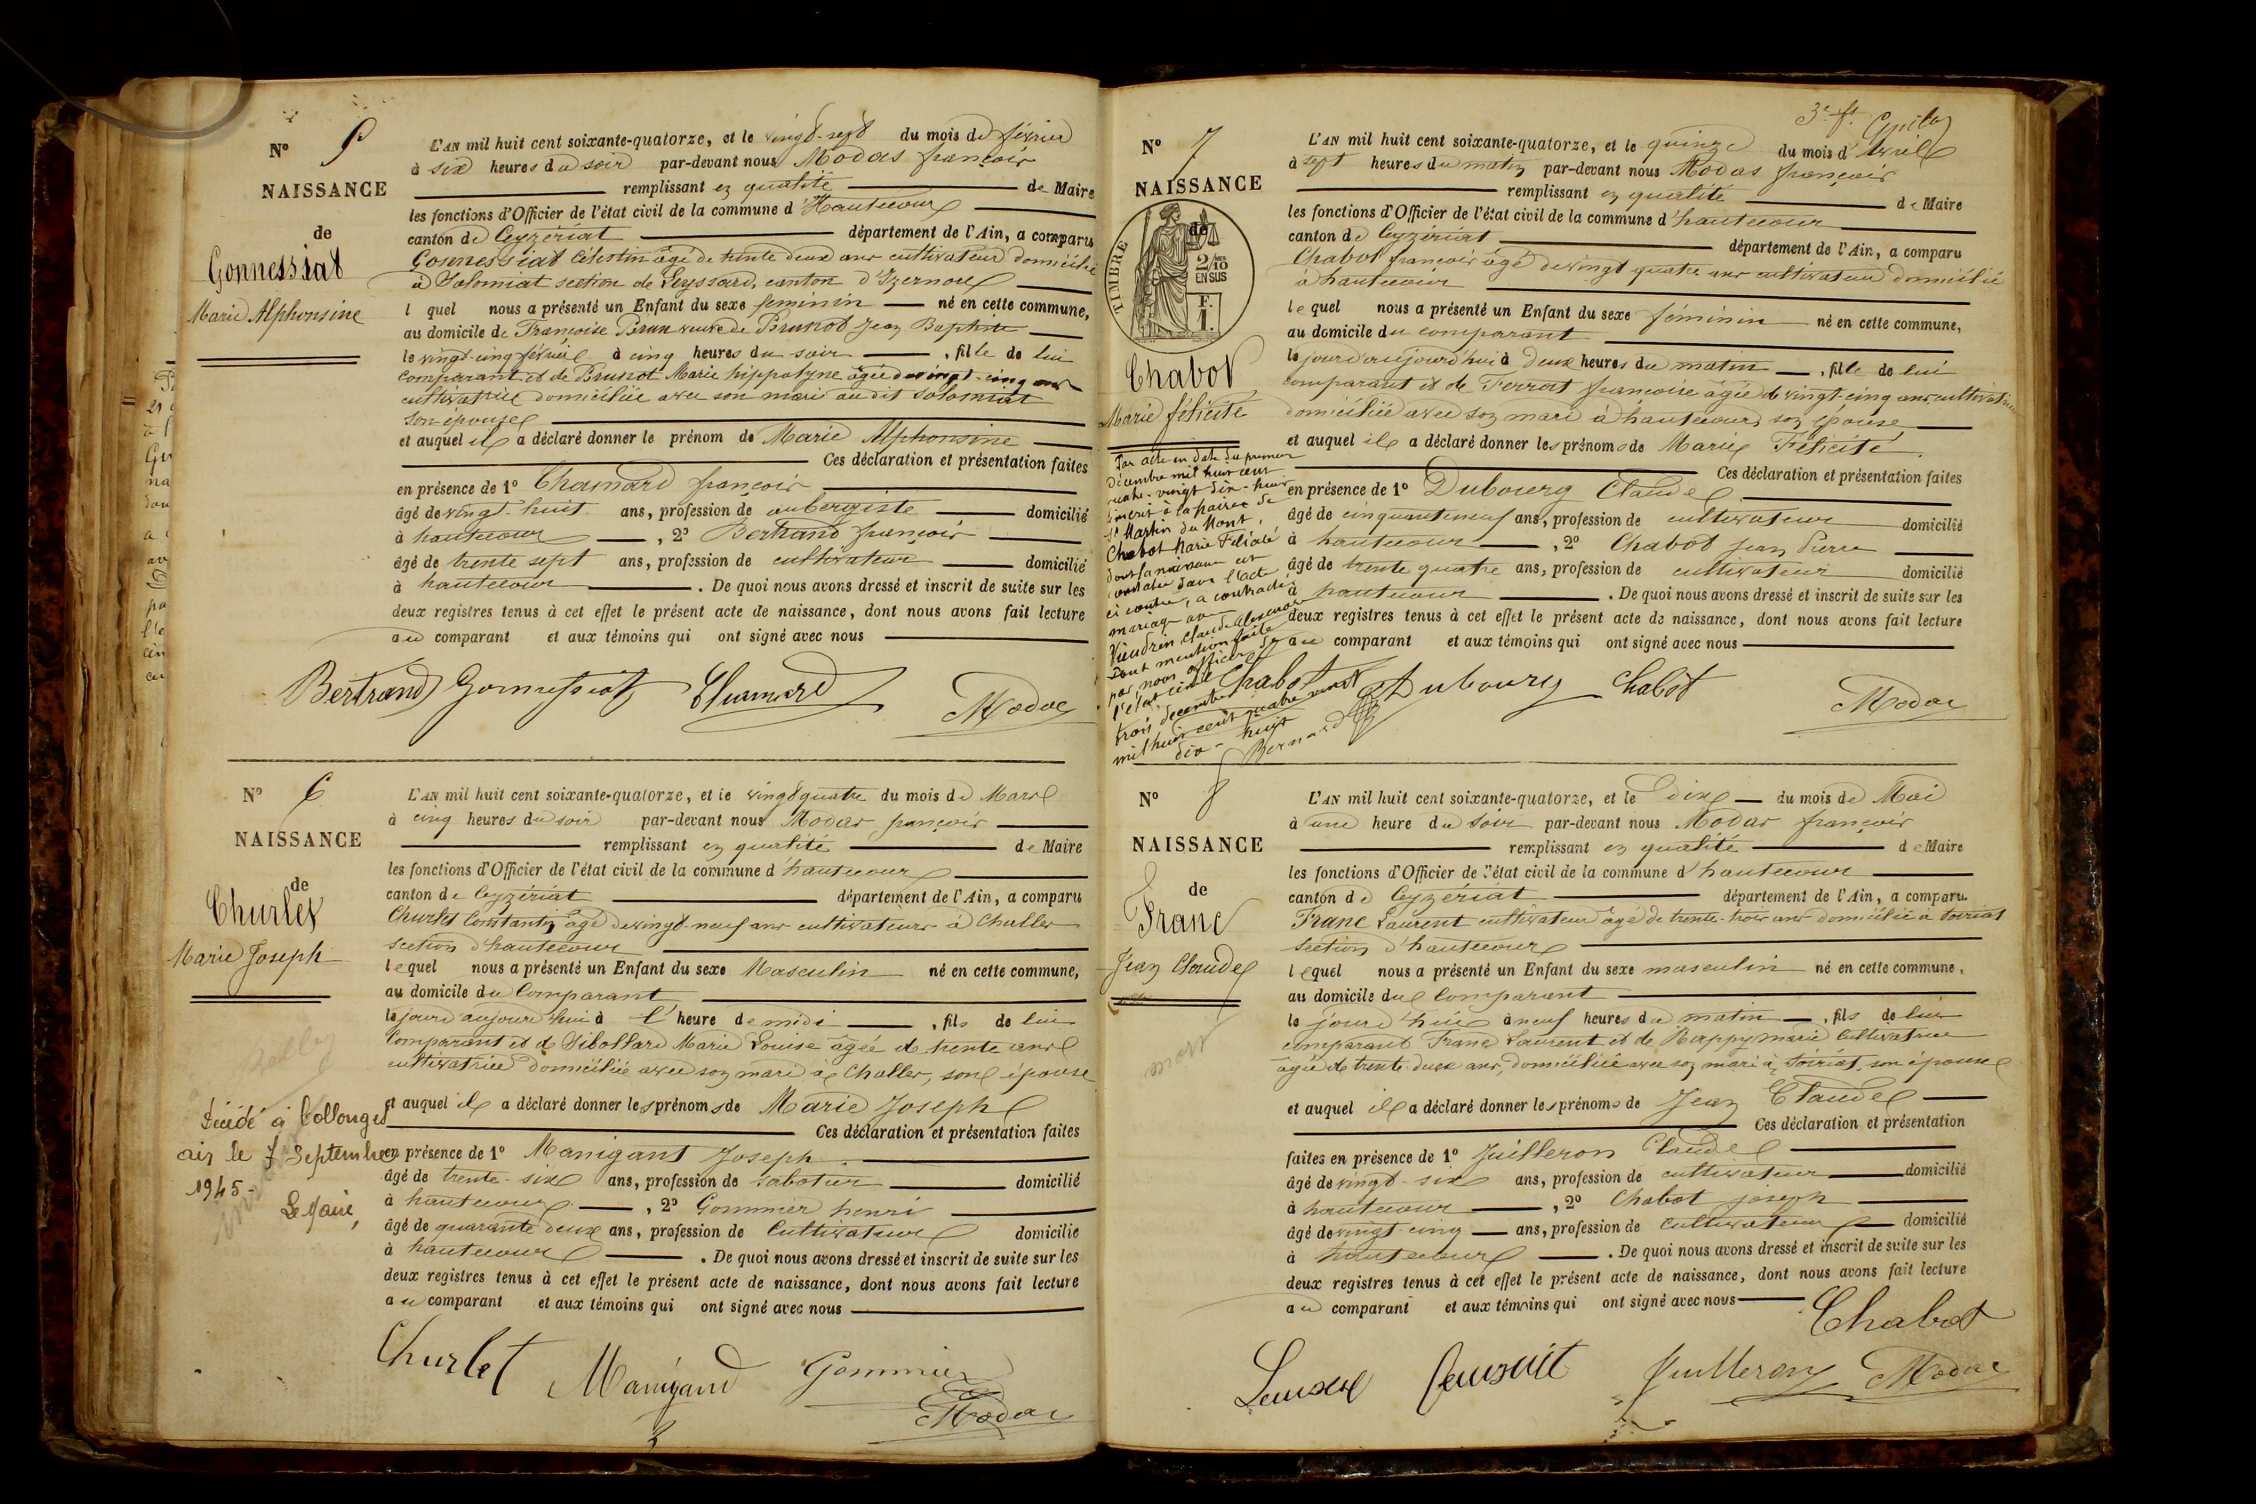 N° 5
NAISSANCE
de
Gonnessiat
Marie Alphonsine
L'AN mil huit cent soixante-quatorze, et le vingt-sept du mois de février
à six heures du soir par-devant nous Modas françois
remplissant en qualité de Maire
les fonctions d'Officier de l'état civil de la commune d'Hautecour
canton de Ceyzériat département de l'Ain, a comparu
Gonnessiat Célestin âgé de trente deux ans cultivateur domicilié
à Solomiat section de Leyssard, canton d'Izernore
lequel nous a présenté un Enfant du sexe feminin né en cette commune,
au domicile de Françoise Brun veuve de Brunot Jean Baptiste
le vingt-cinq février à cinq heures du soir, fille de lui
comparant et de Brunot Marie hippolyne âgée de vingt-cinq ans
cultivatrice domiciliée avec son mari au dit Solomiat
son épouse
et auquel il a déclaré donner le prénom de Marie Alphonsine
Ces déclaration et présentation faites
en présence de 1° Chamard françois
âgé de vingt-huit ans, profession de aubergiste domicilié
à hautecour, 2° Bertrand françois
âgé de trente sept ans, profession de cultivateur domicilié
à hautecour. De quoi nous avons dressé et inscrit de suite sur les
deux registres tenus à cet effet le présent acte de naissance, dont nous avons fait lecture
au comparant et aux témoins qui ont signé avec nous
Bertrand Gonnessiat Chamard Modas
N° 6
NAISSANCE
de
Churlet
Marie Joseph
Décédé à Collonges
ain le 7 Septembre
1945
Le Maire,
L'AN mil huit cent soixante-quatorze, et le vingt quatre du mois de Mars
à cinq heures du soir par-devant nous Modas françois
remplissant en qualité de Maire
les fonctions d'Officier de l'état civil de la commune d'hautecour
canton de Ceyzériat département de l'Ain, a comparu
Churlet Constantin âgé de vingt-neuf ans cultivateurs à Challes
section d'hautecour
lequel nous a présenté un Enfant du sexe Masculin né en cette commune,
au domicile du Comparant
le jourd'aujourd'hui à l'heure de midi, fils de lui
Comparant et de Sibollard Marie Louise âgée de trente ans
cultivatrice domiciliée avec son mari à Challes, son épouse
et auquel il a déclaré donner les prénoms de Marie Joseph
Ces déclaration et présentation faites
en présence de 1° Manigant Joseph
âgé de trente-six ans, profession de sabotier domicilié
à hautecour, 2° Gommier henri
âgé de quarante deux ans, profession de Cultivateur domicilié
à hautecour. De quoi nous avons dressé et inscrit de suite sur les
deux registres tenus à cet effet le présent acte de naissance, dont nous avons fait lecture
au comparant et aux témoins qui ont signé avec nous
Churlet Manigand Gommier
Modas
3e ft.
N° 7
NAISSANCE
de
TIMBRE
2/10 EN SUS
F. 1.
Chabot
Marie félicité
Par acte en date du premier
décembre mil huit cent
quatre-vingt dix-huit
inscrit à la mairie de
St Martin du Mont,
Chabot Marie Félicité
dont la naissance est
constatée dans l'acte
ci contre, a contracté
mariage avec
Vieudrin Claude
Dont mention faite
par nous officier de
l'état civil le
trois décembre
mil huit cent quatre vingt
dix-huit
Bernard
L'AN mil huit cent soixante-quatorze, et le quinze du mois d'Avril
à sept heures du matin par-devant nous Modas françois
remplissant en qualité de Maire
les fonctions d'Officier de l'état civil de la commune d'hautecour
canton de Ceyzériat département de l'Ain, a comparu
Chabot françois âgé de vingt quatre ans cultivateur domicilié
à hautecour
lequel nous a présenté un Enfant du sexe féminin né en cette commune,
au domicile du comparant
le jourd'aujourd'hui à deux heures du matin, fille de lui
comparant et de Ferrat françoise âgée de vingt-cinq ans cultivatrice
domiciliée avec son mari à hautecour, son épouse
et auquel il a déclaré donner les prénoms de Marie Félicité
Ces déclaration et présentation faites
en présence de 1° Dubourg Claude
âgé de cinquanteneuf ans, profession de cultivateur domicilié
à hautecour, 2° Chabot jean Pierre
âgé de trente quatre ans, profession de cultivateur domicilié
à hautecour. De quoi nous avons dressé et inscrit de suite sur les
deux registres tenus à cet effet le présent acte de naissance, dont nous avons fait lecture
au comparant et aux témoins qui ont signé avec nous
Chabot Dubourg Chabot Modas
N° 8
NAISSANCE
de
Franc
Jean Claude
mort
L'AN mil huit cent soixante-quatorze, et le dix du mois de Mai
à une heure du soir par-devant nous Modas françois
remplissant en qualité de Maire
les fonctions d'Officier de l'état civil de la commune d'hautecour
canton de Ceyzériat département de l'Ain, a comparu
Franc Laurent cultivateur âgé de trente-trois ans domicilié à Soiriat
section d'hautecour
lequel nous a présenté un Enfant du sexe masculin né en cette commune,
au domicile du Comparant
le jour d'hui à neuf heures du matin, fils de lui
comparant Franc Laurent et de Rappy marie Cultivatrice
âgée de trente-deux ans, domiciliée avec son mari à Soiriat, son épouse
et auquel il a déclaré donner les prénoms de Jean Claude
Ces déclaration et présentation
faites en présence de 1° Juilleron Claude
âgé de vingt-six ans, profession de cultivateur domicilié
à hautecour, 2° Chabot joseph
âgé de vingt-cinq ans, profession de Cultivateur domicilié
à hautecour. De quoi nous avons dressé et inscrit de suite sur les
deux registres tenus à cet effet le présent acte de naissance, dont nous avons fait lecture
au comparant et aux témoins qui ont signé avec nous
Chabot
Juilleron Modas